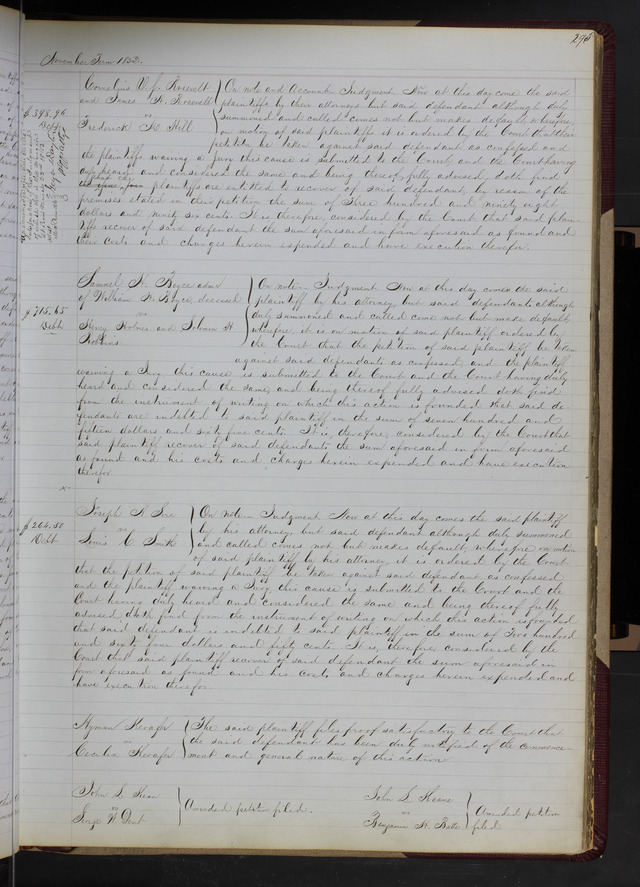 293
November Term 1852.
Cornelius V. S. Roosevelt
and James A. Roosevelt
vs
Frederick K Hill
$398.96
Debt
On note and Account Judgment Now at this day come the said
plaintiffs by their attorneys but said defendant although duly
summoned and called comes not but makes default, wherefore
on motion of said plaintiffs it is ordered by the Court that their
petition be taken against said defendant as confessed and
the plaintiffs waiving a jury this cause is submitted to the Court and the Court having
duly heard and considered the same and being thereof fully advised, doth find
plaintiffs are entitled to recover of said defendant by reason of the
premises stated in their petition the sum of Three hundred and ninety eight
dollars and ninety six cents. It is therefore, considered by the Court that said plain-
tiffs recover of said defendant the sum aforesaid in form aforesaid as found and
their costs and charges herein expended and have execution therefor.
Samuel H. Boyce admr
of William H. Boyce deceased
vs
Henry Holmes and Solomon H
Robbins
$715.65
Debt
On note Judgment Now at this day comes the said
plaintiff by his attorney but said defendants although
duly summoned and called come not but make default,
wherefore it is on motion of said plaintiff ordered by
the Court that the petition of said plaintiff be taken
against said defendants as confessed, and the plaintiff
waiving a Jury this cause is submitted to the Court and the Court having duly
heard and considered the same, and being thereof fully advised doth find
from the instrument of writing on which this action is founded that said de-
fendants are indebted to said plaintiff in the sum of seven hundred and
fifteen dollars and sixty five cents. It is, therefore, considered by the Court that
said plaintiff recover of said defendants the sum aforesaid in form aforesaid
as found and his costs and charges herein expended and have execution
therefor.
x
Joseph A
vs
Louis C. Smith
$264.50
Debt
On note Judgment Now at this day comes the said plaintiff
by his attorney but said defendant although duly summoned
and called comes not but makes default, wherefore on motion
of said plaintiff by his attorney it is ordered by the Court
that the petition of said plaintiff be taken against said defendant as confessed
and the plaintiff waiving a Jury this cause is submitted to the Court and the
Court having duly heard and considered the same and being thereof fully
advised doth find from the instrument of writing on which this action is founded
that said defendant is indebted to said plaintiff in the sum of Two hundred
and sixty four dollars and fifty cents. It is, therefore considered by the
Court that said plaintiff recover of said defendant the sum aforesaid in
form aforesaid as found and his costs and charges herein expended and
have execution therefor.
Hyman
vs
Cecilia
The said plaintiff files proof satisfactory to the Court that
the said defendant has been duly notified of the commence-
ment and general nature of this action
John S.
vs
Amended petition filed.
John S Keene
vs
Benjamin H. Batte
Amended petition
filed